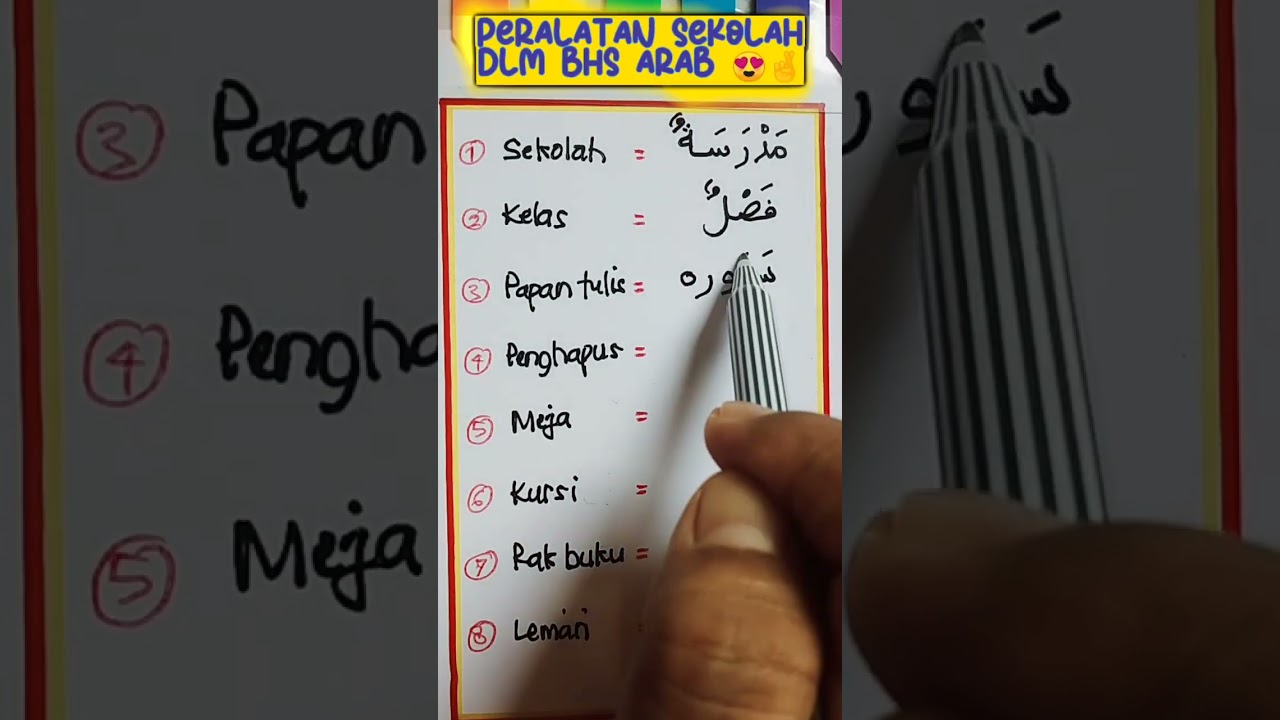 PERALATAN SEKOLAH
DLM BHS ARAB 😍🤞
① Sekolah = مَدْرَسَةٌ
② Kelas = فَضْلٌ
③ Papan tulis =
④ Penghapus =
⑤ Meja =
⑥ Kursi =
⑦ Rak buku =
⑧ Lemari
③ Papan
④
⑤ Meja